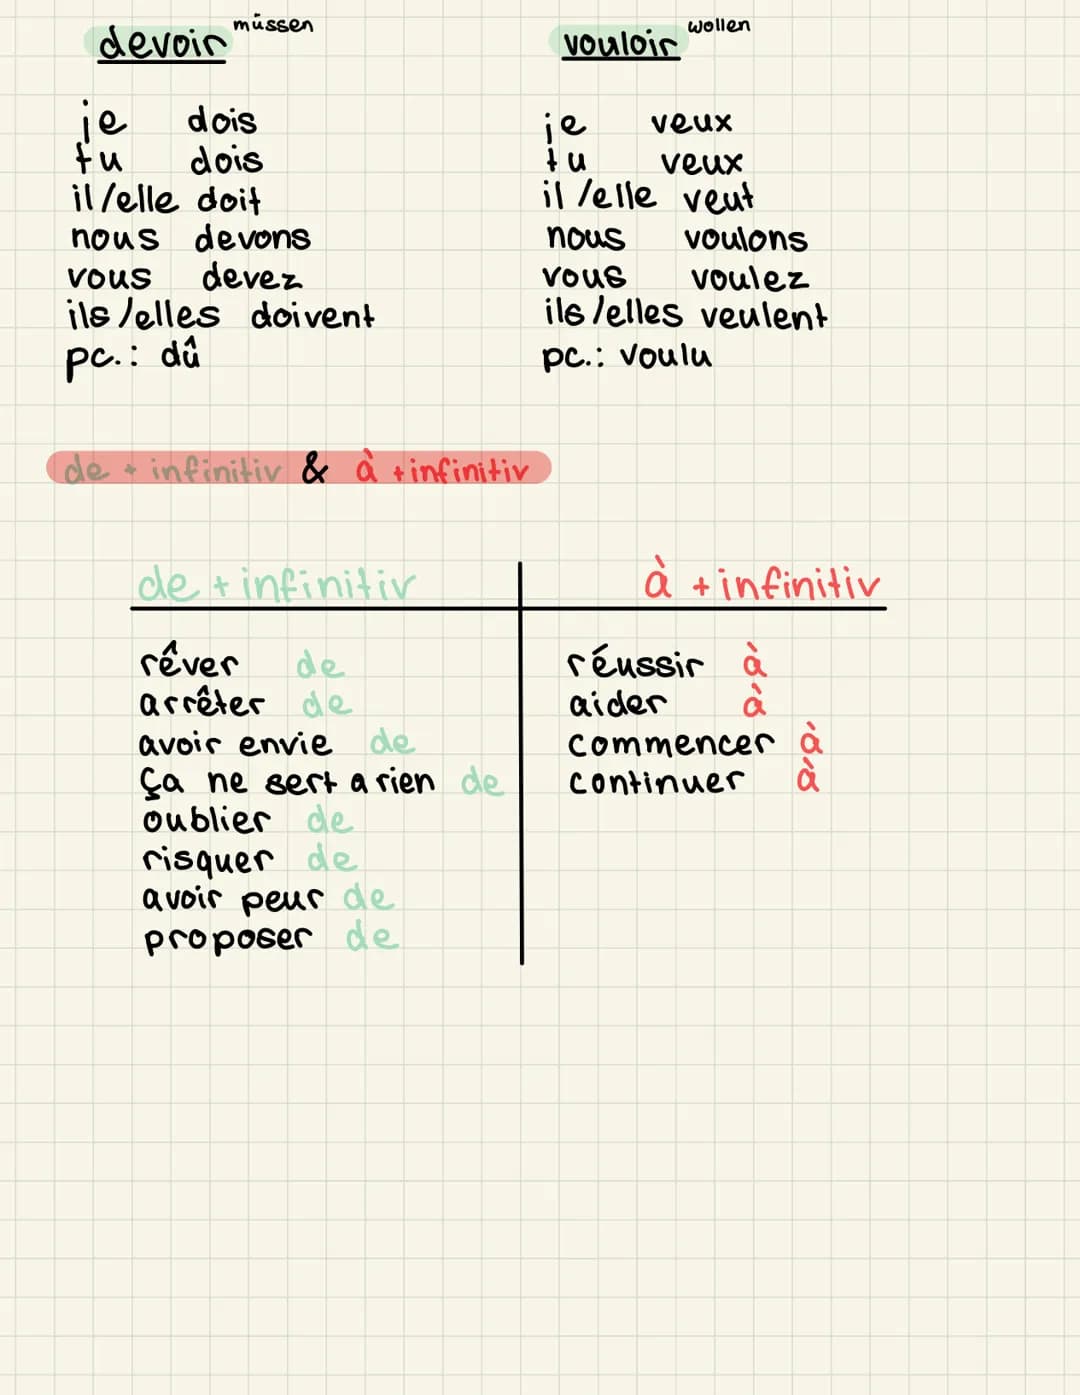 devoir müssen
je dois
tu dois
il/elle doit
nous devons
vous devez
ils/elles doivent
pc.: dû
vouloir wollen
je veux
tu veux
il/elle veut
nous voulons
vous voulez
ils/elles veulent
pc.: voulu
de + infinitiv & à + infinitiv
de + infinitiv
rêver de
arrêter de
avoir envie de
ça ne sert a rien de
oublier de
risquer de
avoir peur de
proposer de
à + infinitiv
réussir à
aider à
commencer à
continuer à